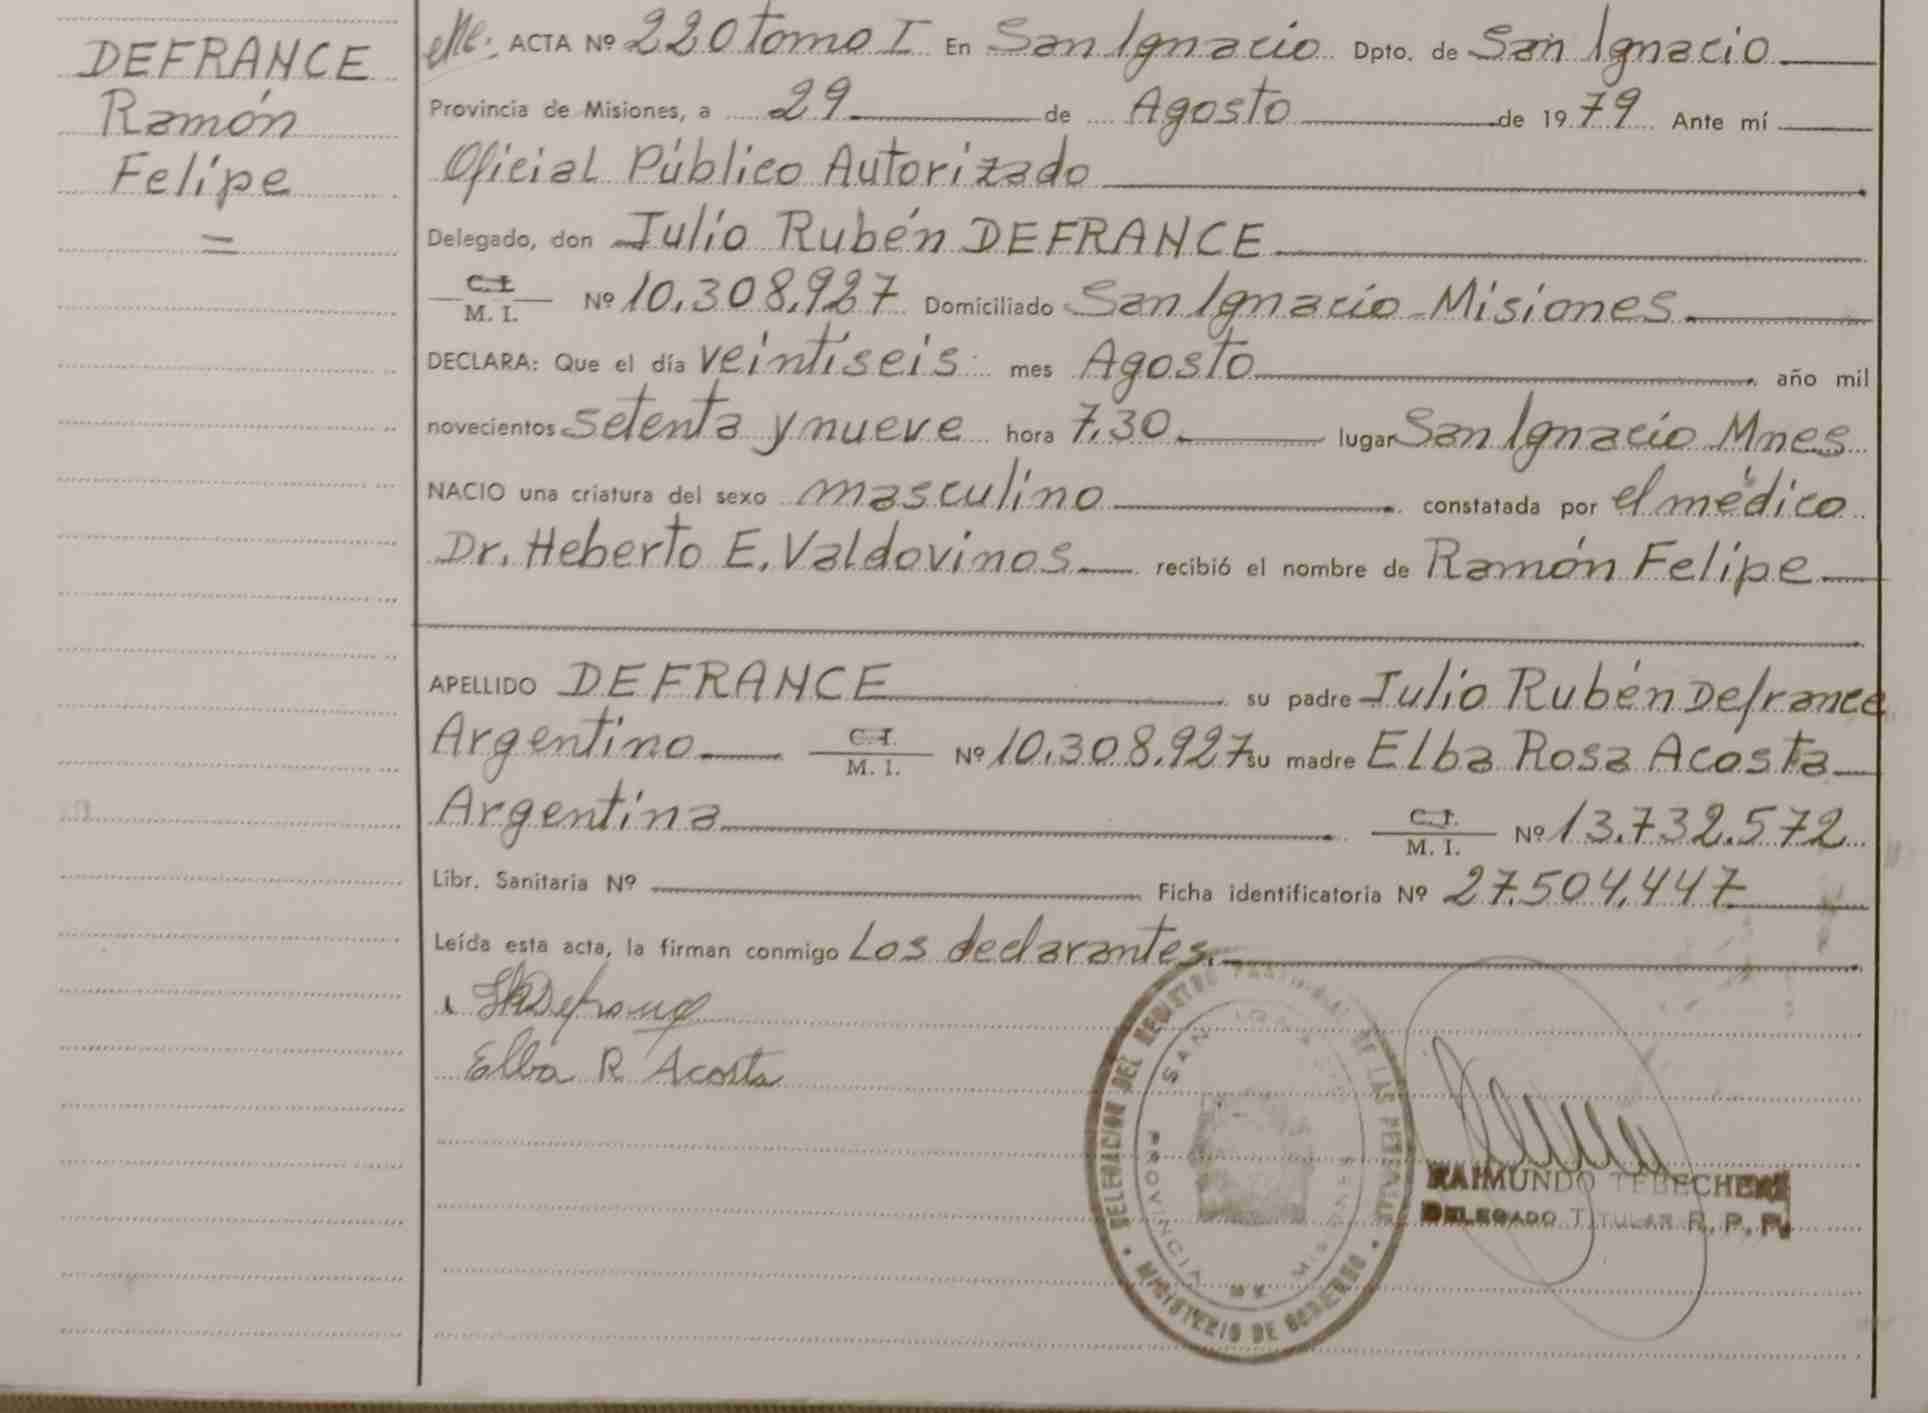 DEFRANCE
Ramón
Felipe
=
ACTA Nº 220 Tomo I En San Ignacio Dpto. de San Ignacio
Provincia de Misiones, a 29 de Agosto de 1979 Ante mí
Oficial Público Autorizado
Delegado, don Julio Rubén DEFRANCE
C.I.
M. I. Nº 10.308.927 Domiciliado San Ignacio - Misiones
DECLARA: Que el día veintiseis mes Agosto año mil
novecientos setenta y nueve hora 7,30 lugar San Ignacio Mnes
NACIO una criatura del sexo masculino constatada por el médico
Dr. Heberto E. Valdovinos recibió el nombre de Ramón Felipe
APELLIDO DEFRANCE su padre Julio Rubén Defrance
Argentino C.I. M. I. Nº 10.308.927 su madre Elba Rosa Acosta
Argentina C.I. M. I. Nº 13.732.572
Libr. Sanitaria Nº Ficha identificatoria Nº 27.504.447
Leída esta acta, la firman conmigo Los declarantes.
Elba R Acosta
DELEGACION DEL REGISTRO PROVINCIAL DE LAS PERSONAS
SAN IGNACIO
PROVINCIA DE MISIONES
MINISTERIO DE GOBIERNO
RAIMUNDO
DELEGADO TITULAR R. P. P.